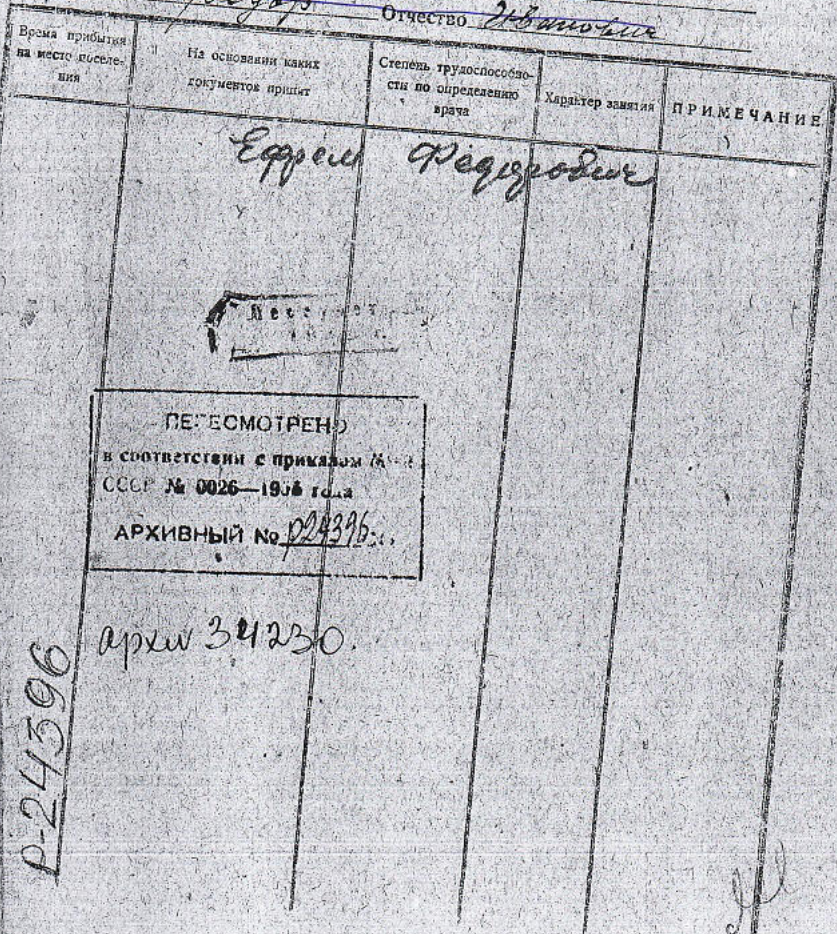 Отчество Иванович
Время прибытия на место поселения
На основании каких документов принят
Степень трудоспособности по определению врача
Характер занятия
ПРИМЕЧАНИЕ
Ефрем Федорович
ПЕРЕСМОТРЕНО
в соответствии с приказом
СССР № 0026—1956 года
АРХИВНЫЙ № р24396
архив 34230.
Р-24396